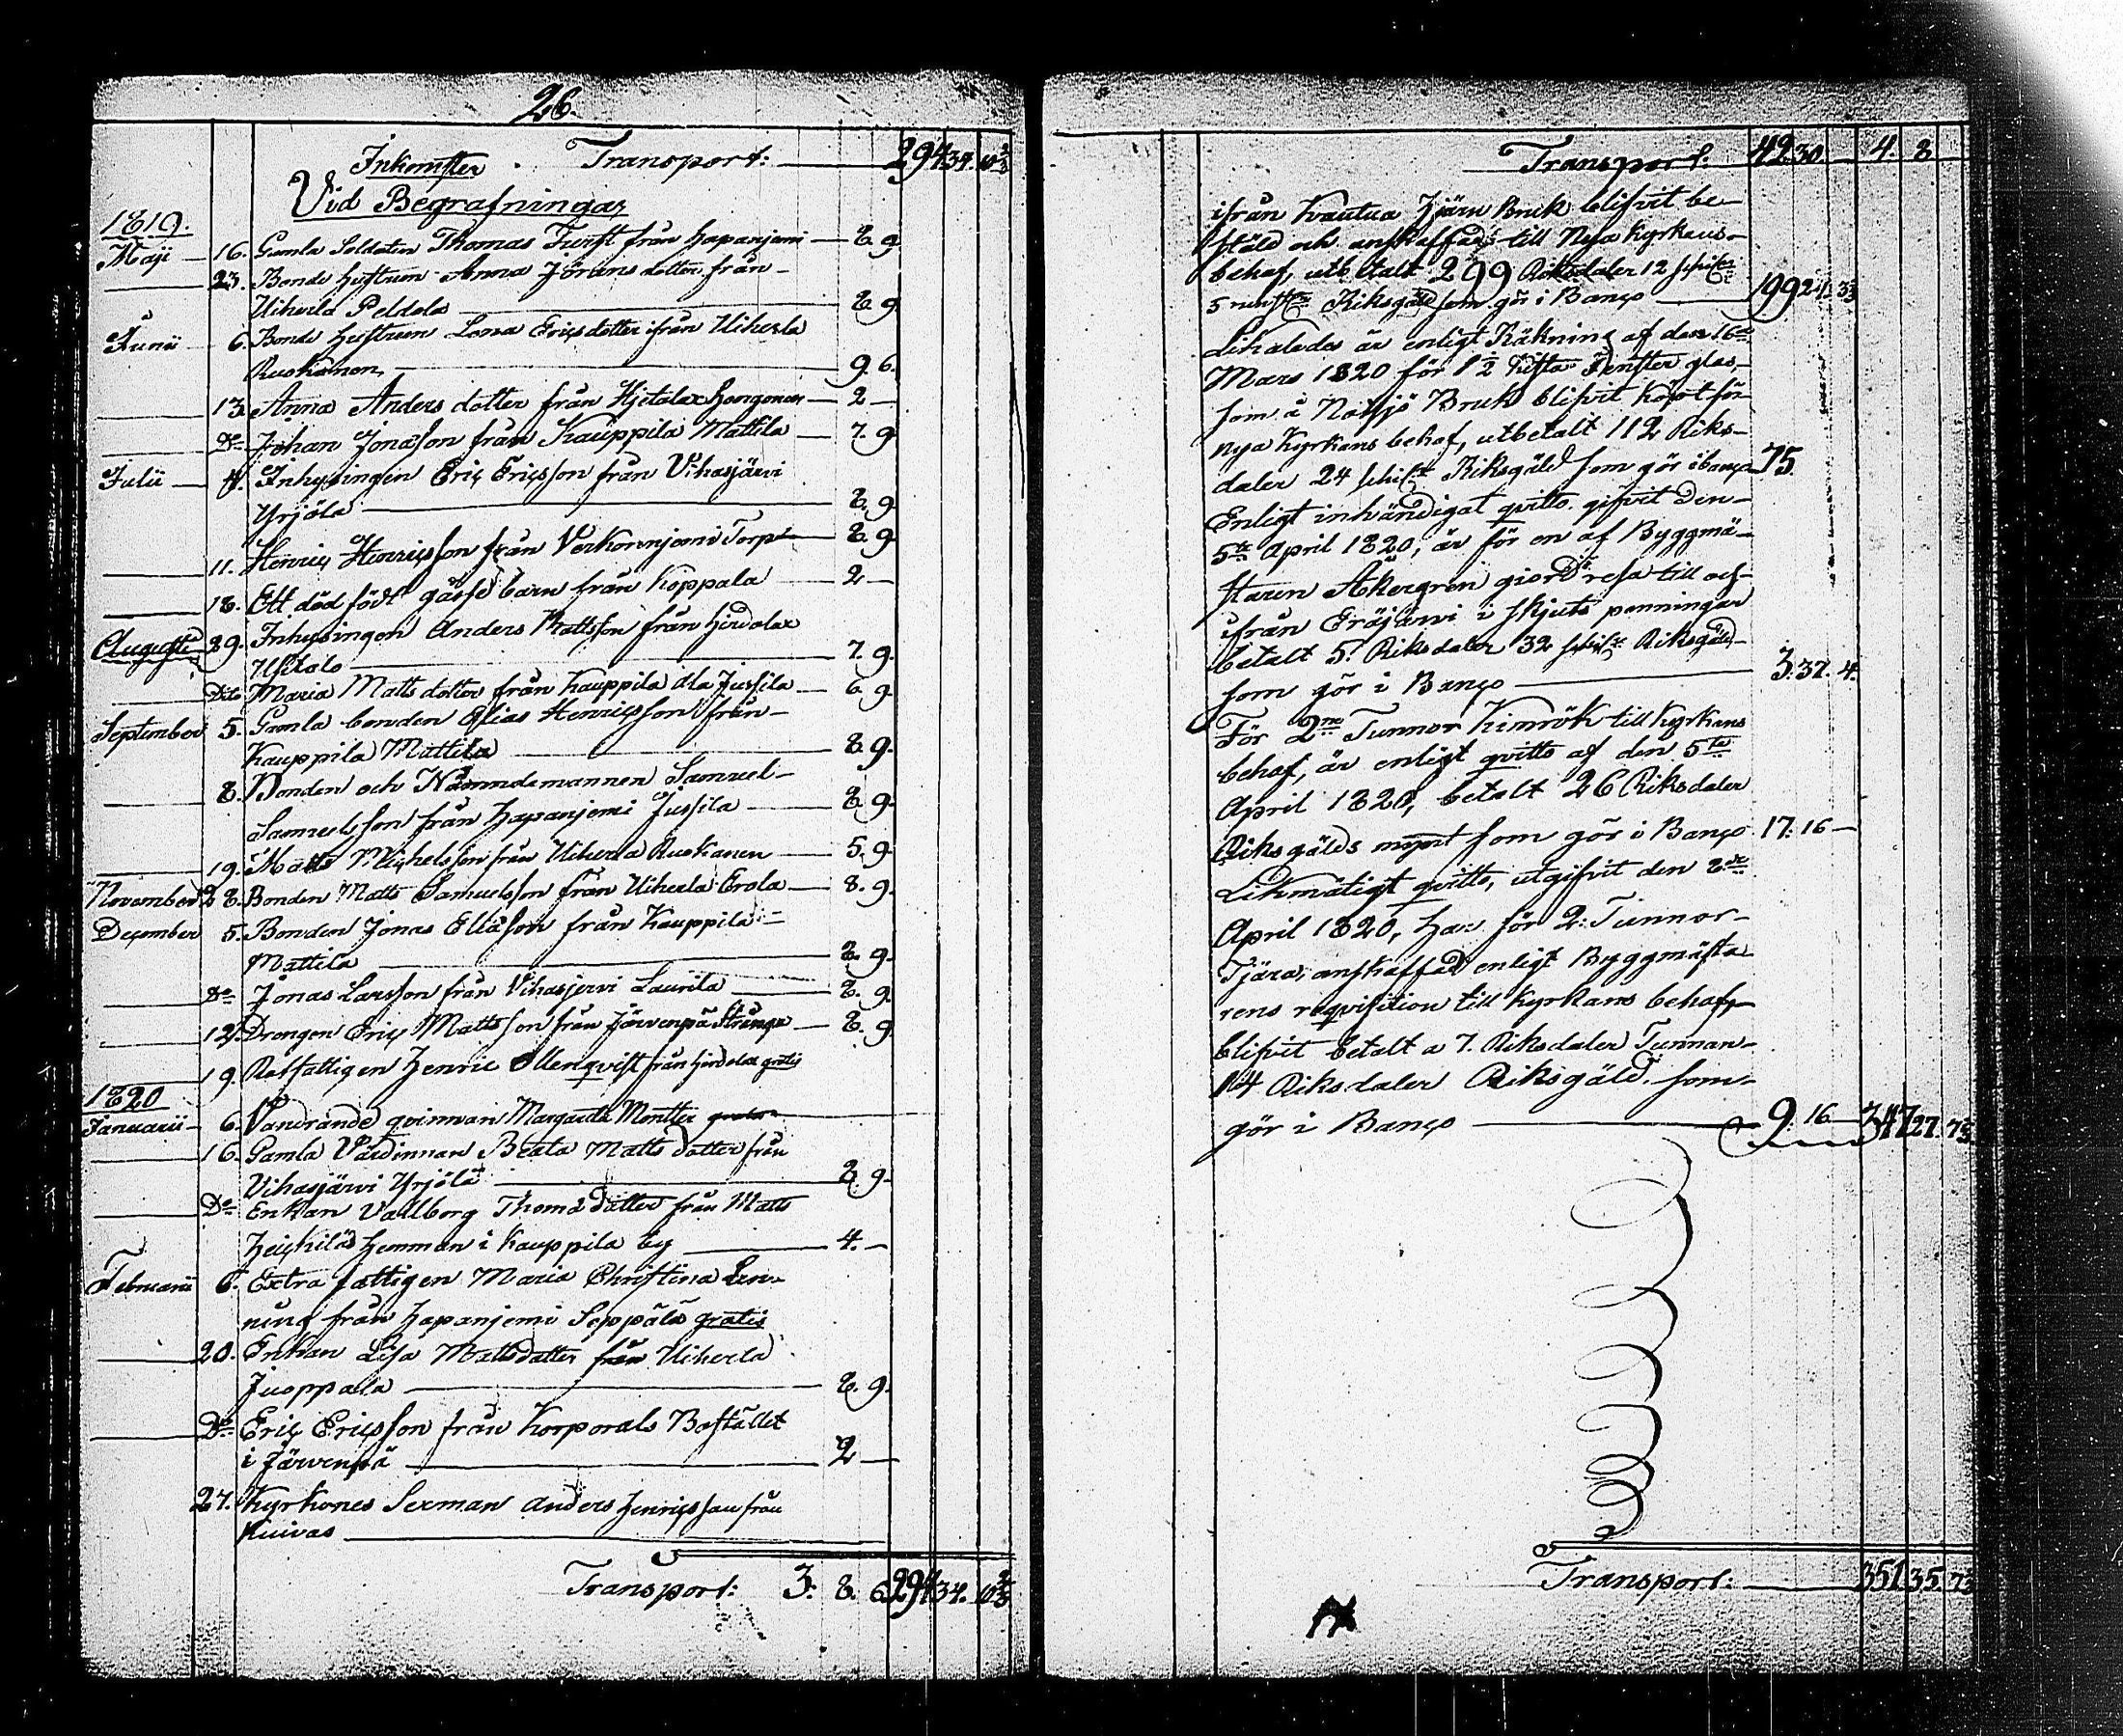 26.
Inkomster Transport: 294 34. 10 2/3
Vid Begrafningar
1819.
Maji 16. Gamla Soldaten Thomas Turst från Hapanjemi 8 9
23. Bonde hustrun Anna Jörans dotter från
Uiherla Peldola 8. 9.
Junii 6. Bonde hustrun Lena Ericsdotter ifrån Uiherla
Ruokanen 9. 6.
13. Anna Anders dotter från Hjetalax Hongonen 2 —
Do Johan Jonasson från Kauppila Mattila 7. 9
Julii 4. Inhysingen Eric Ericsson från Vihasjärvi
Yrjölä 8. 9
11. Henric Henricsson från Verkonnjemi Torp 8. 9
18. Ett död födt gåsse barn från Koppala 2 —
Augusti 29. Inhysingen Anders Mattsson från Hirdolax
Usitalo 7. 9.
Dito Maria Matts dotter från Kauppila ala Jussila 6. 9.
September 5. Gamla bonden Elias Henricsson från
Kauppila Mattila 8 9.
8. Bonden och Nämndemannen Samuel
Samuelsson från Hapanjemi Jussila 8. 9.
19. Matts Michelsson från Uiherla Ruokanen 5. 9.
November 28. Bonden Matts Samuelsson från Uiherla Erola 8. 9.
December 5. Bonden Jonas Eliasson från Kauppila
Mattila 8. 9.
Do Jonas Larsson från Vihasjervi Laurila 8. 9.
12. Drengen Eric Mattsson från Järvenpä Strånge 8. 9
19. Rotfattigen Henric Ollenqvist från Hirdolax gratis
1820
Januarii 6. Vandrande qvinnan Margareta Montter gratis
16. Gamla Värdinnan Beata Matts dotter från
Vihasjärvi Yrjölä 8. 9.
Do Enkan Vallborg Thomadotter från Matts
Heickiläs Hemman i Kauppila by 4. —
Februarii 6. Extra fattigen Maria Christina
från Hapanjemi Seppälä gratis
20. Enkan Lisa Mattsdotter från Uiherla
Juoppala 8. 9.
Do Eric Ericsson från Korporals Bostället
i Järvenpä 2 —
27. Kyrkones Sexman Anders Henricsson från
Kuivas
Transport: 3. 8. 6 294 34. 10 2/3
Transport. 42 30 4. 8
ifrån Kautua Jjärn Bruk blifvit be-
stäld och anskaffad till Nya Kyrkans
behof, utbetalt 299 Riksdaler 12 schillr
5 runstr Riksgäld som gör i Banco 199 24. 3 1/3
Likaledes är enligt Räkning af den 16de
Mars 1820 för 1 1/2 Kista Fenster glas,
som å Notsjö Bruk blifvit köpt för
nya Kyrkans behof, utbetalt 112 Riks-
daler 24 schillr Riksgäld som gör i banco 75.
Enligt inhändigat qvitto gifvit den
5te April 1820, är för en af Byggmä-
staren Åkergren giord resa till och
ifrån Eräjärvi i skjuts penningar
betalt 5. Riksdaler 32 schillr Riksgäld
som gör i Banco 3. 37. 4.
För 2ne Tunnor Kimrök till Kyrkans
behof, är enligt qvitto af den 5te
April 1820, betalt 26 Riksdaler
Riksgälds mynt som gör i Banco 17. 16 —
Likmätigt qvitto, utgifvit den 8de
April 1820, har för 2. Tunnor
Tjära, anskaffad enligt Byggmästa
rens reqvisition till Kyrkans behof,
blifvit betalt a 7. Riksdaler Tunnan
14 Riksdaler Riksgäld. som
gör i Banco 9. 16 — 347 27. 7 1/3
Transport. 351 35. 7 1/3